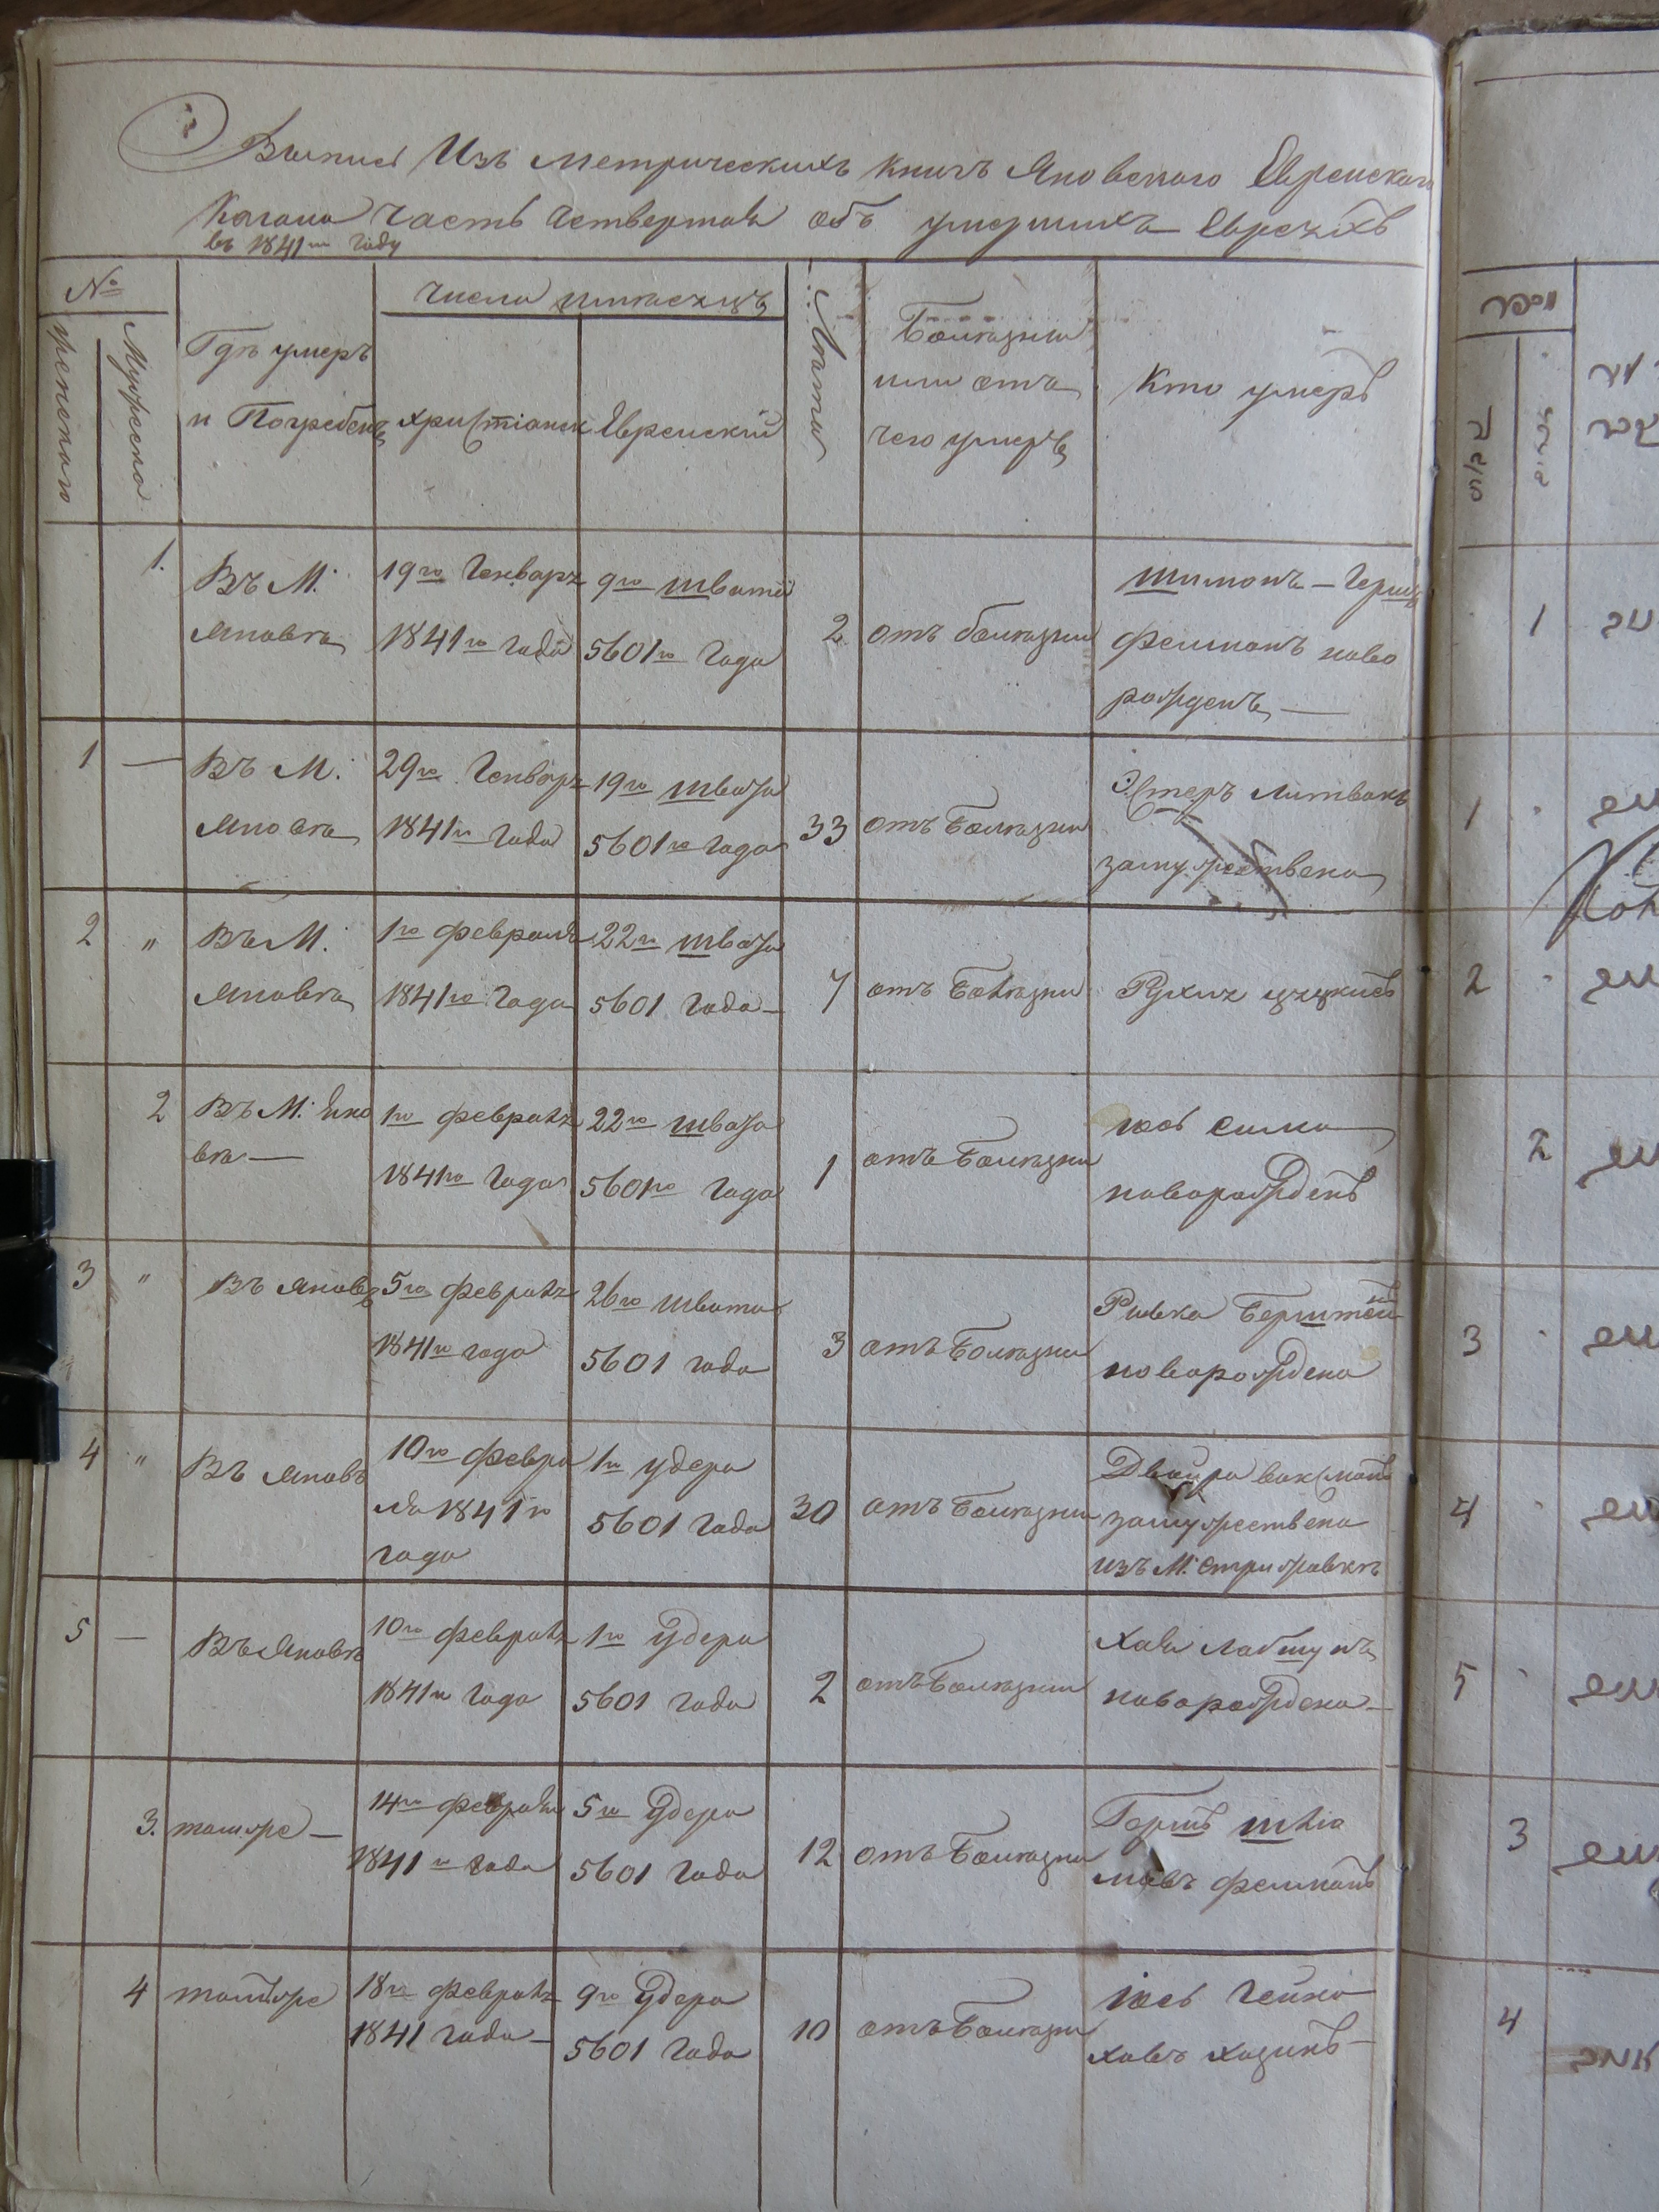 Выпись Изъ метрическихъ книгъ Яновского Еврейского
Кагала часть Четвертая объ умершихъ Евреяхъ
въ 1841м Году
№
женского
Мужеска
Гдѣ умеръ
и Погребенъ
Числа и мѣсяцъ
христіанск
Еврейский
Лѣта
Болѣзни
или отъ
чего умеръ
Кто умеръ
1.
Въ М:
Яновѣ
19го Генваря
1841го года
9го швата
5601го Года
2
отъ болѣзни
шимонъ – Герш
Фелманъ ново
рожденъ —
1 —
Въ М:
Яновѣ
29го Генваря
1841го Года
19го швата
5601го Года
33
отъ Болѣзни
Эстеръ Литвакъ
замужествена
2 "
Въ М:
Яновѣ
1го февраля
1841го Года
22го швата
5601 Года –
7
отъ Болѣзни
2
Въ М: Яно
вѣ —
1го февраля
1841го Года
22го швата
5601го Года
1
отъ Болѣзни
новорожденъ
3 "
Въ Яновѣ
5го февраля
1841го года
26го швата
5601 года
3
отъ Болѣзни
Ривка Берштейн
новорождена
4 "
Въ Яновѣ
10го февра
ля 1841го
года
1го удера
5601 Года
30
отъ Болѣзни
Двойра ваксманъ
замужествена
изъ М: Стрижавкѣ
5 —
Въ Яновѣ
10го февраля
1841го Года
1го Удера
5601 Года
2
отъ Болѣзни
Хая Лабшунъ
новорождена –
3.
тамже –
14го февраля
1841го Года
5го Удера
5601 Года
12
отъ Болѣзни
Гершъ шліо
мовъ фелманъ
4
тамже
18го февраля
1841 Года –
9го Удера
5601 Года
10
отъ Болѣзни
хазинъ –
1
1
2
2
3
4
5
3
4